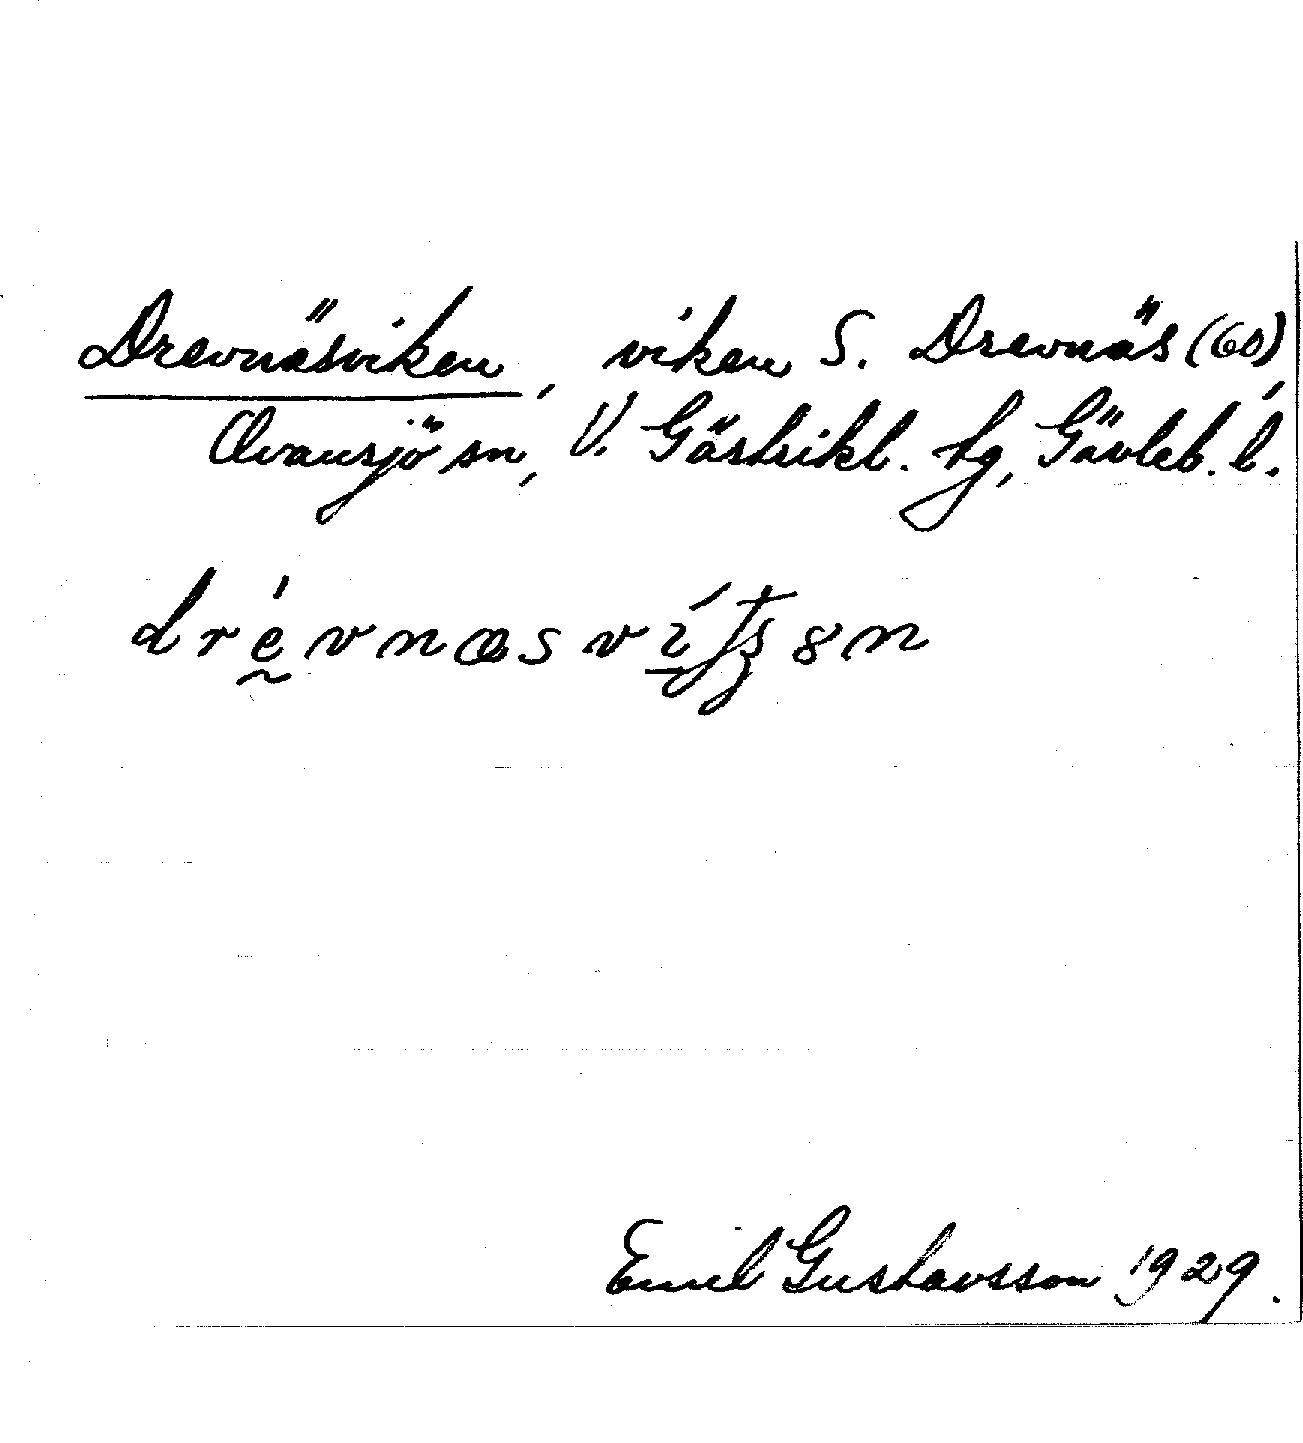 Drevnäsviken, viken S. Drevnäs (60),
Ovansjö sn, V. Gästrikl. tg, Gävleb. l.
Emil Gustavsson 1929.